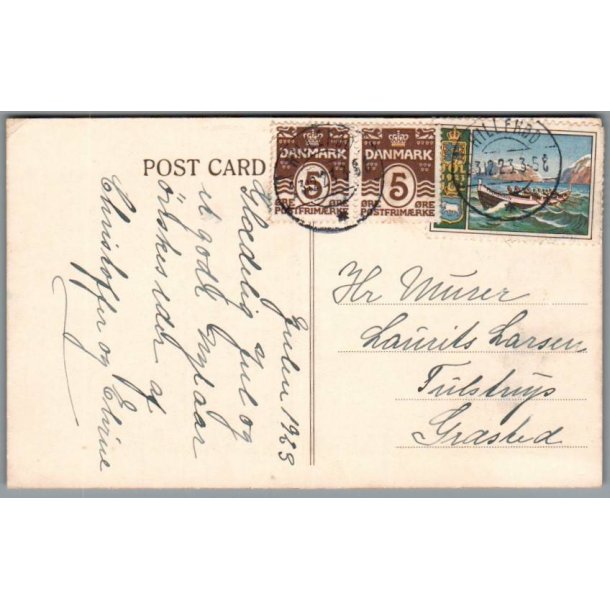 POST CARD
DANMARK
5
ØRE
ØRE
POSTFRIMÆRKE
DANMARK
5
ØRE
ØRE
POSTFRIMÆRKE
23.3-5 8
Julen 1923
Glædelig Jul og
et godt Nytaar
önskes eder af
Christoffer og Elvine
Hr Murer
Laurits Larsen
Tulstrup
Græsted